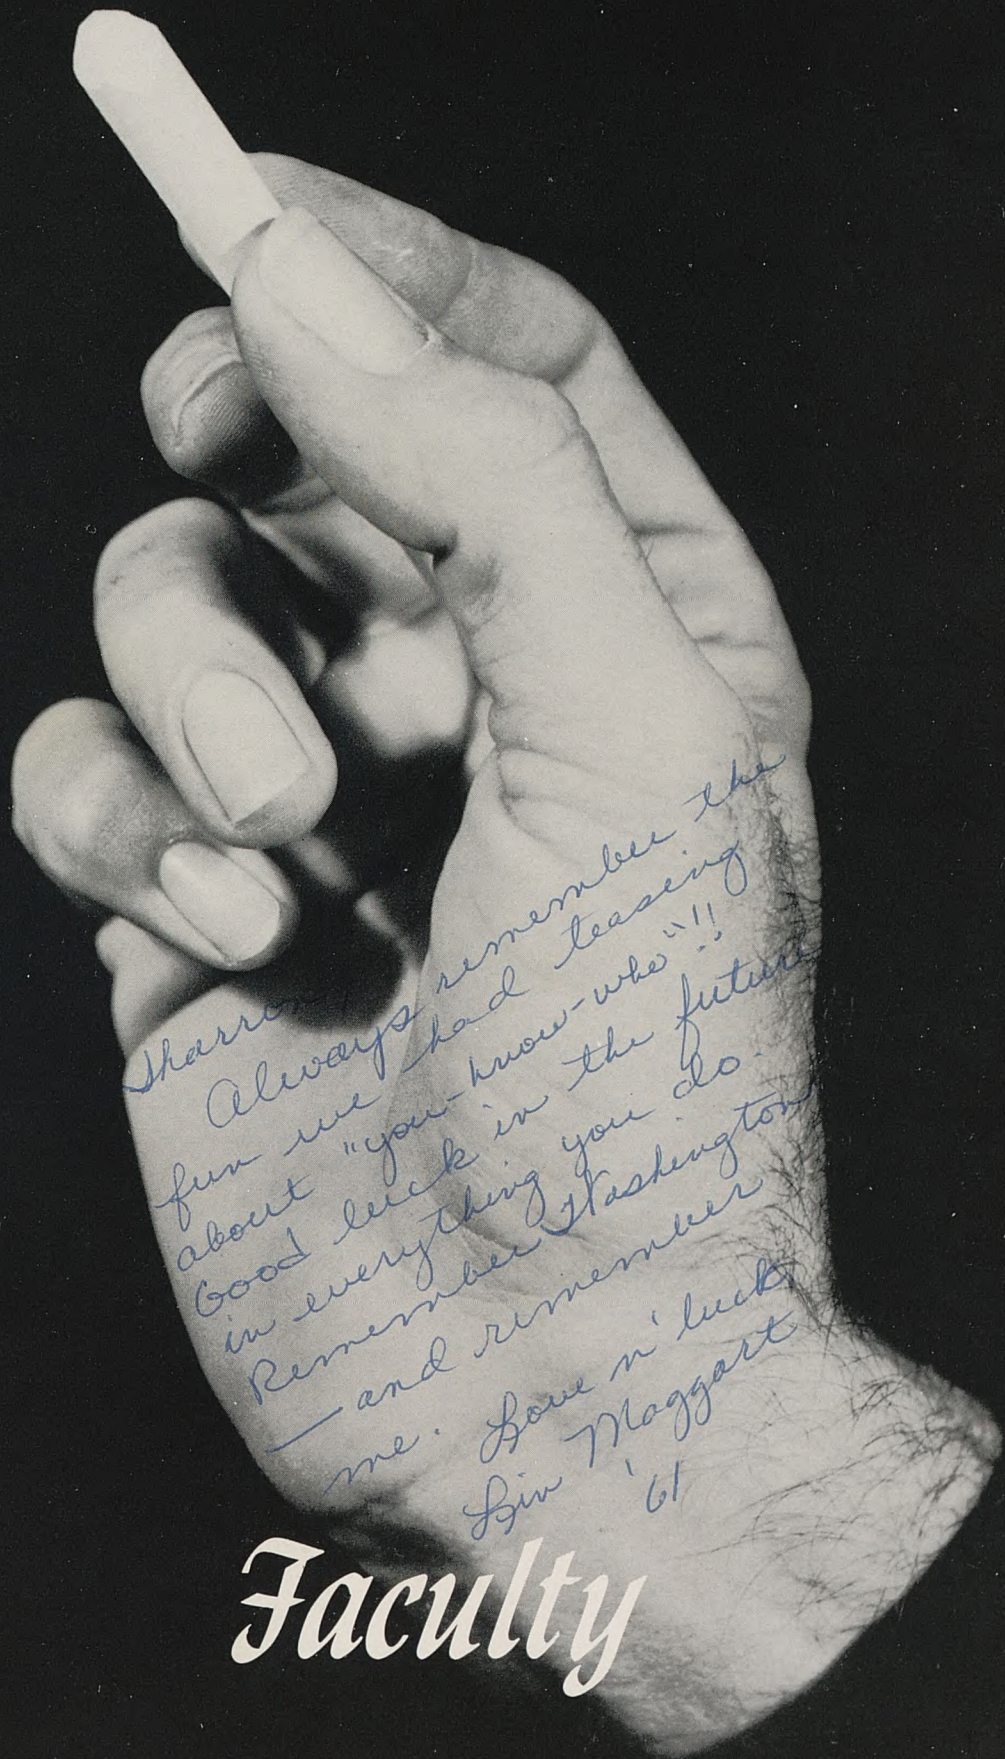 Sharron,
Always remember the
fun we had teasing
about "you-know-who"!!
Good luck in the future
in everything you do.
Remember Washington
— and remember
me. Love n' luck
Lin Maggart
'61
Faculty